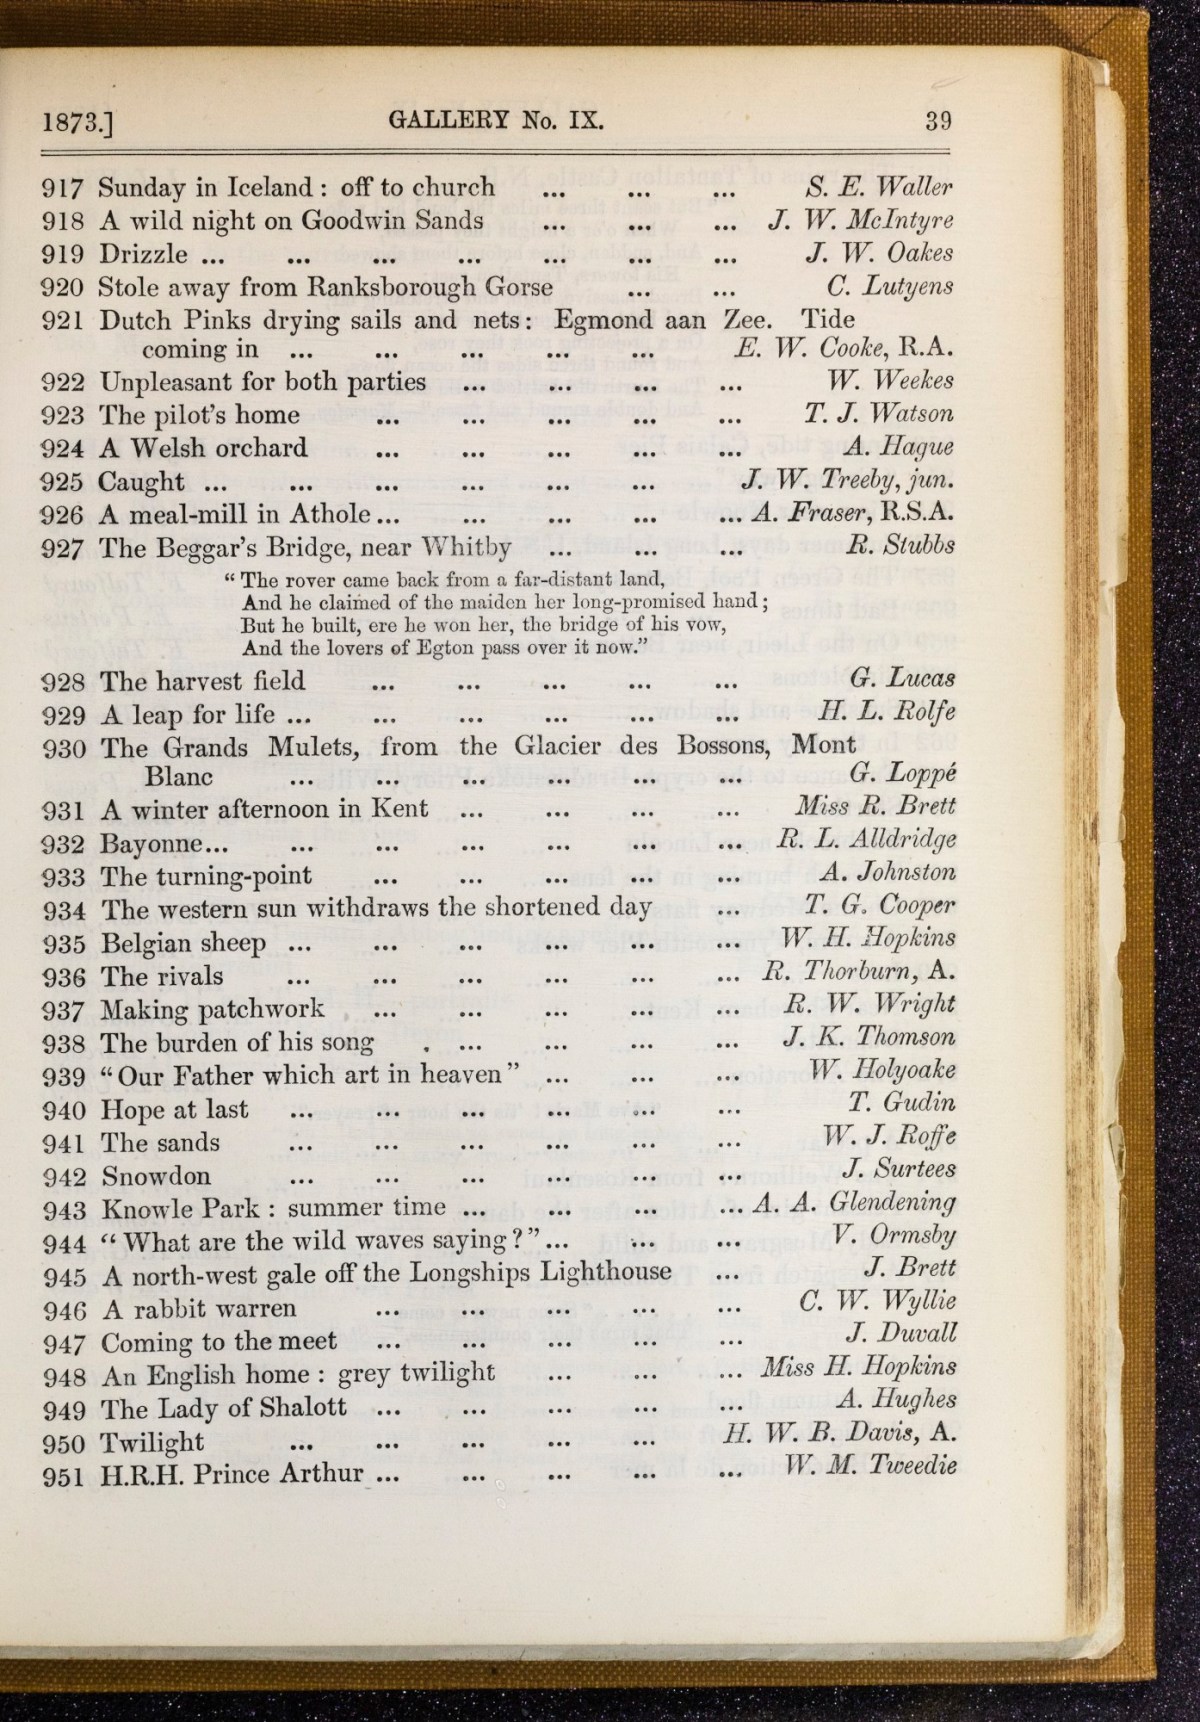 1873.] GALLERY No. IX. 39
917 Sunday in Iceland : off to church ... ... ... S. E. Waller
918 A wild night on Goodwin Sands ... ... ... J. W. McIntyre
919 Drizzle ... ... ... ... ... ... ... J. W. Oakes
920 Stole away from Ranksborough Gorse ... ... C. Lutyens
921 Dutch Pinks drying sails and nets : Egmond aan Zee. Tide
coming in ... ... ... ... ... E. W. Cooke, R.A.
922 Unpleasant for both parties ... ... ... ... W. Weekes
923 The pilot's home ... ... ... ... ... T. J. Watson
924 A Welsh orchard ... ... ... ... ... A. Hague
925 Caught ... ... ... ... ... ... J. W. Treeby, jun.
926 A meal-mill in Athole ... ... ... ... ... A. Fraser, R.S.A.
927 The Beggar's Bridge, near Whitby ... ... ... R. Stubbs
“ The rover came back from a far-distant land,
And he claimed of the maiden her long-promised hand ;
But he built, ere he won her, the bridge of his vow,
And the lovers of Egton pass over it now.”
928 The harvest field ... ... ... ... ... G. Lucas
929 A leap for life ... ... ... ... ... ... H. L. Rolfe
930 The Grands Mulets, from the Glacier des Bossons, Mont
Blanc ... ... ... ... ... ... G. Loppé
931 A winter afternoon in Kent ... ... ... ... Miss R. Brett
932 Bayonne... ... ... ... ... ... ... R. L. Alldridge
933 The turning-point ... ... ... ... ... A. Johnston
934 The western sun withdraws the shortened day ... T. G. Cooper
935 Belgian sheep ... ... ... ... ... ... W. H. Hopkins
936 The rivals ... ... ... ... ... ... R. Thorburn, A.
937 Making patchwork ... ... ... ... ... R. W. Wright
938 The burden of his song . ... ... ... ... J. K. Thomson
939 “ Our Father which art in heaven ” ... ... ... W. Holyoake
940 Hope at last ... ... ... ... ... ... T. Gudin
941 The sands ... ... ... ... ... ... W. J. Roffe
942 Snowdon ... ... ... ... ... ... J. Surtees
943 Knowle Park : summer time ... ... ... ... A. A. Glendening
944 “ What are the wild waves saying ? ” ... ... ... V. Ormsby
945 A north-west gale off the Longships Lighthouse ... J. Brett
946 A rabbit warren ... ... ... ... ... C. W. Wyllie
947 Coming to the meet ... ... ... ... ... J. Duvall
948 An English home : grey twilight ... ... ... Miss H. Hopkins
949 The Lady of Shalott ... ... ... ... ... A. Hughes
950 Twilight ... ... ... ... ... H. W. B. Davis, A.
951 H.R.H. Prince Arthur ... ... ... ... ... W. M. Tweedie